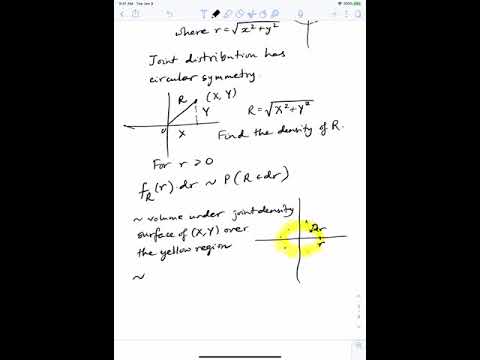 where r = √x²+y²
Joint distribution has
circular symmetry.
R (X, Y)
Y
X
0
R = √X²+Y²
Find the density of R.
For r > 0
f_R(r) dr ~ P(R ∈ dr)
~ volume under joint density
surface of (X, Y) over
the yellow region
dr
r
~